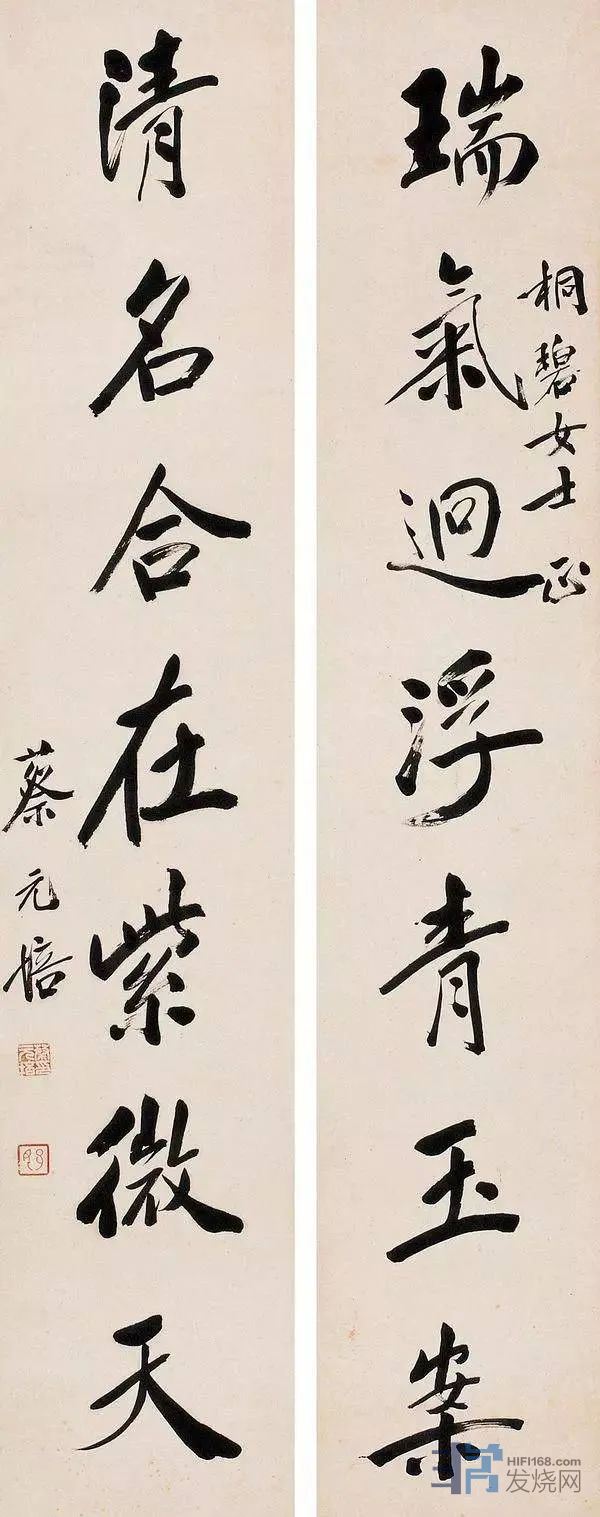 瑞氣迴浮青玉案
桐碧女士正
清名合在紫微天
蔡元培
HIFI168.com
发烧网